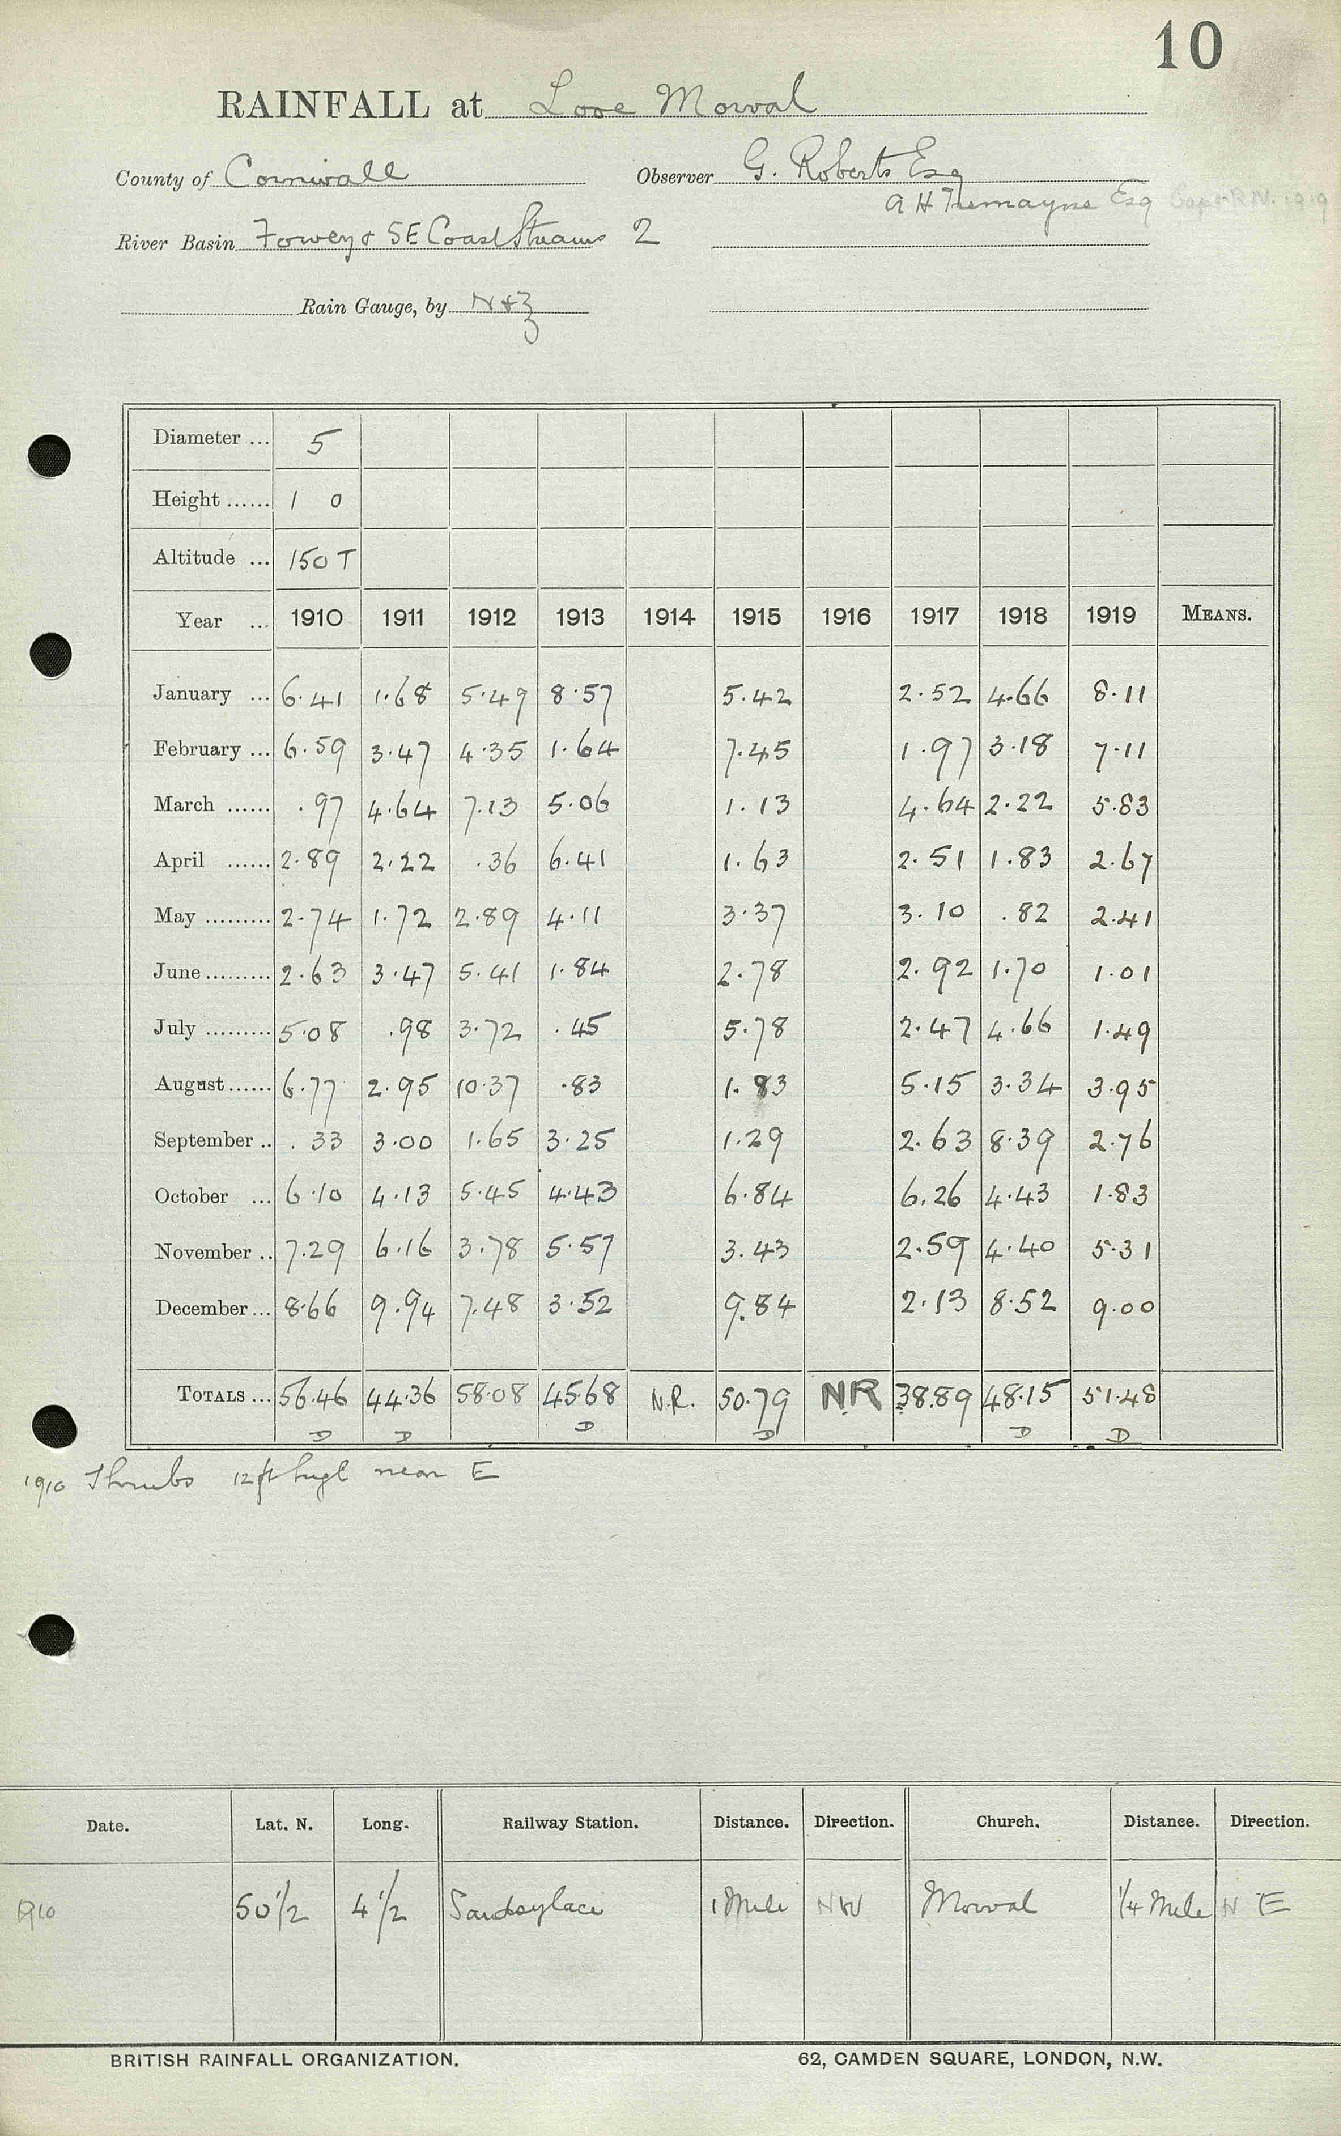 10
RAINFALL at Looe Morval
County of Cornwall Observer G. Roberts Esq
A H Tremayne Esq Capt RN. 1919
River Basin Fowey & SE Coast Streams 2
Rain Gauge, by N & Z
Diameter ... 5
Height ...... 1 0
Altitude ... 150 T
Year ... 1910 1911 1912 1913 1914 1915 1916 1917 1918 1919 MEANS.
January ... 6.41 1.68 5.49 8.57 5.42 2.52 4.66 8.11
February ... 6.59 3.47 4.35 1.64 7.45 1.97 3.18 7.11
March ...... .97 4.64 7.13 5.06 1.13 4.64 2.22 5.83
April ...... 2.89 2.22 .36 6.41 1.63 2.51 1.83 2.67
May ......... 2.74 1.72 2.89 4.11 3.37 3.10 .82 2.41
June ......... 2.63 3.47 5.41 1.84 2.78 2.92 1.70 1.01
July ......... 5.08 .98 3.72 .45 5.78 2.47 4.66 1.49
August ...... 6.77 2.95 10.37 .83 1.83 5.15 3.34 3.95
September .. .33 3.00 1.65 3.25 1.29 2.63 8.39 2.76
October ... 6.10 4.13 5.45 4.43 6.84 6.26 4.43 1.83
November .. 7.29 6.16 3.78 5.57 3.43 2.59 4.40 5.31
December ... 8.66 9.94 7.48 3.52 9.84 2.13 8.52 9.00
TOTALS ... 56.46 44.36 58.08 45.68 N.R. 50.79 NR 38.89 48.15 51.48
D D D D D D
1910 Shrubs 12 ft high near E
Date. Lat. N. Long. Railway Station. Distance. Direction. Church. Distance. Direction.
1910 50 1/2 4 1/2 Sandplace 1 Mile NW Morval 1/4 Mile N E
BRITISH RAINFALL ORGANIZATION. 62, CAMDEN SQUARE, LONDON, N.W.